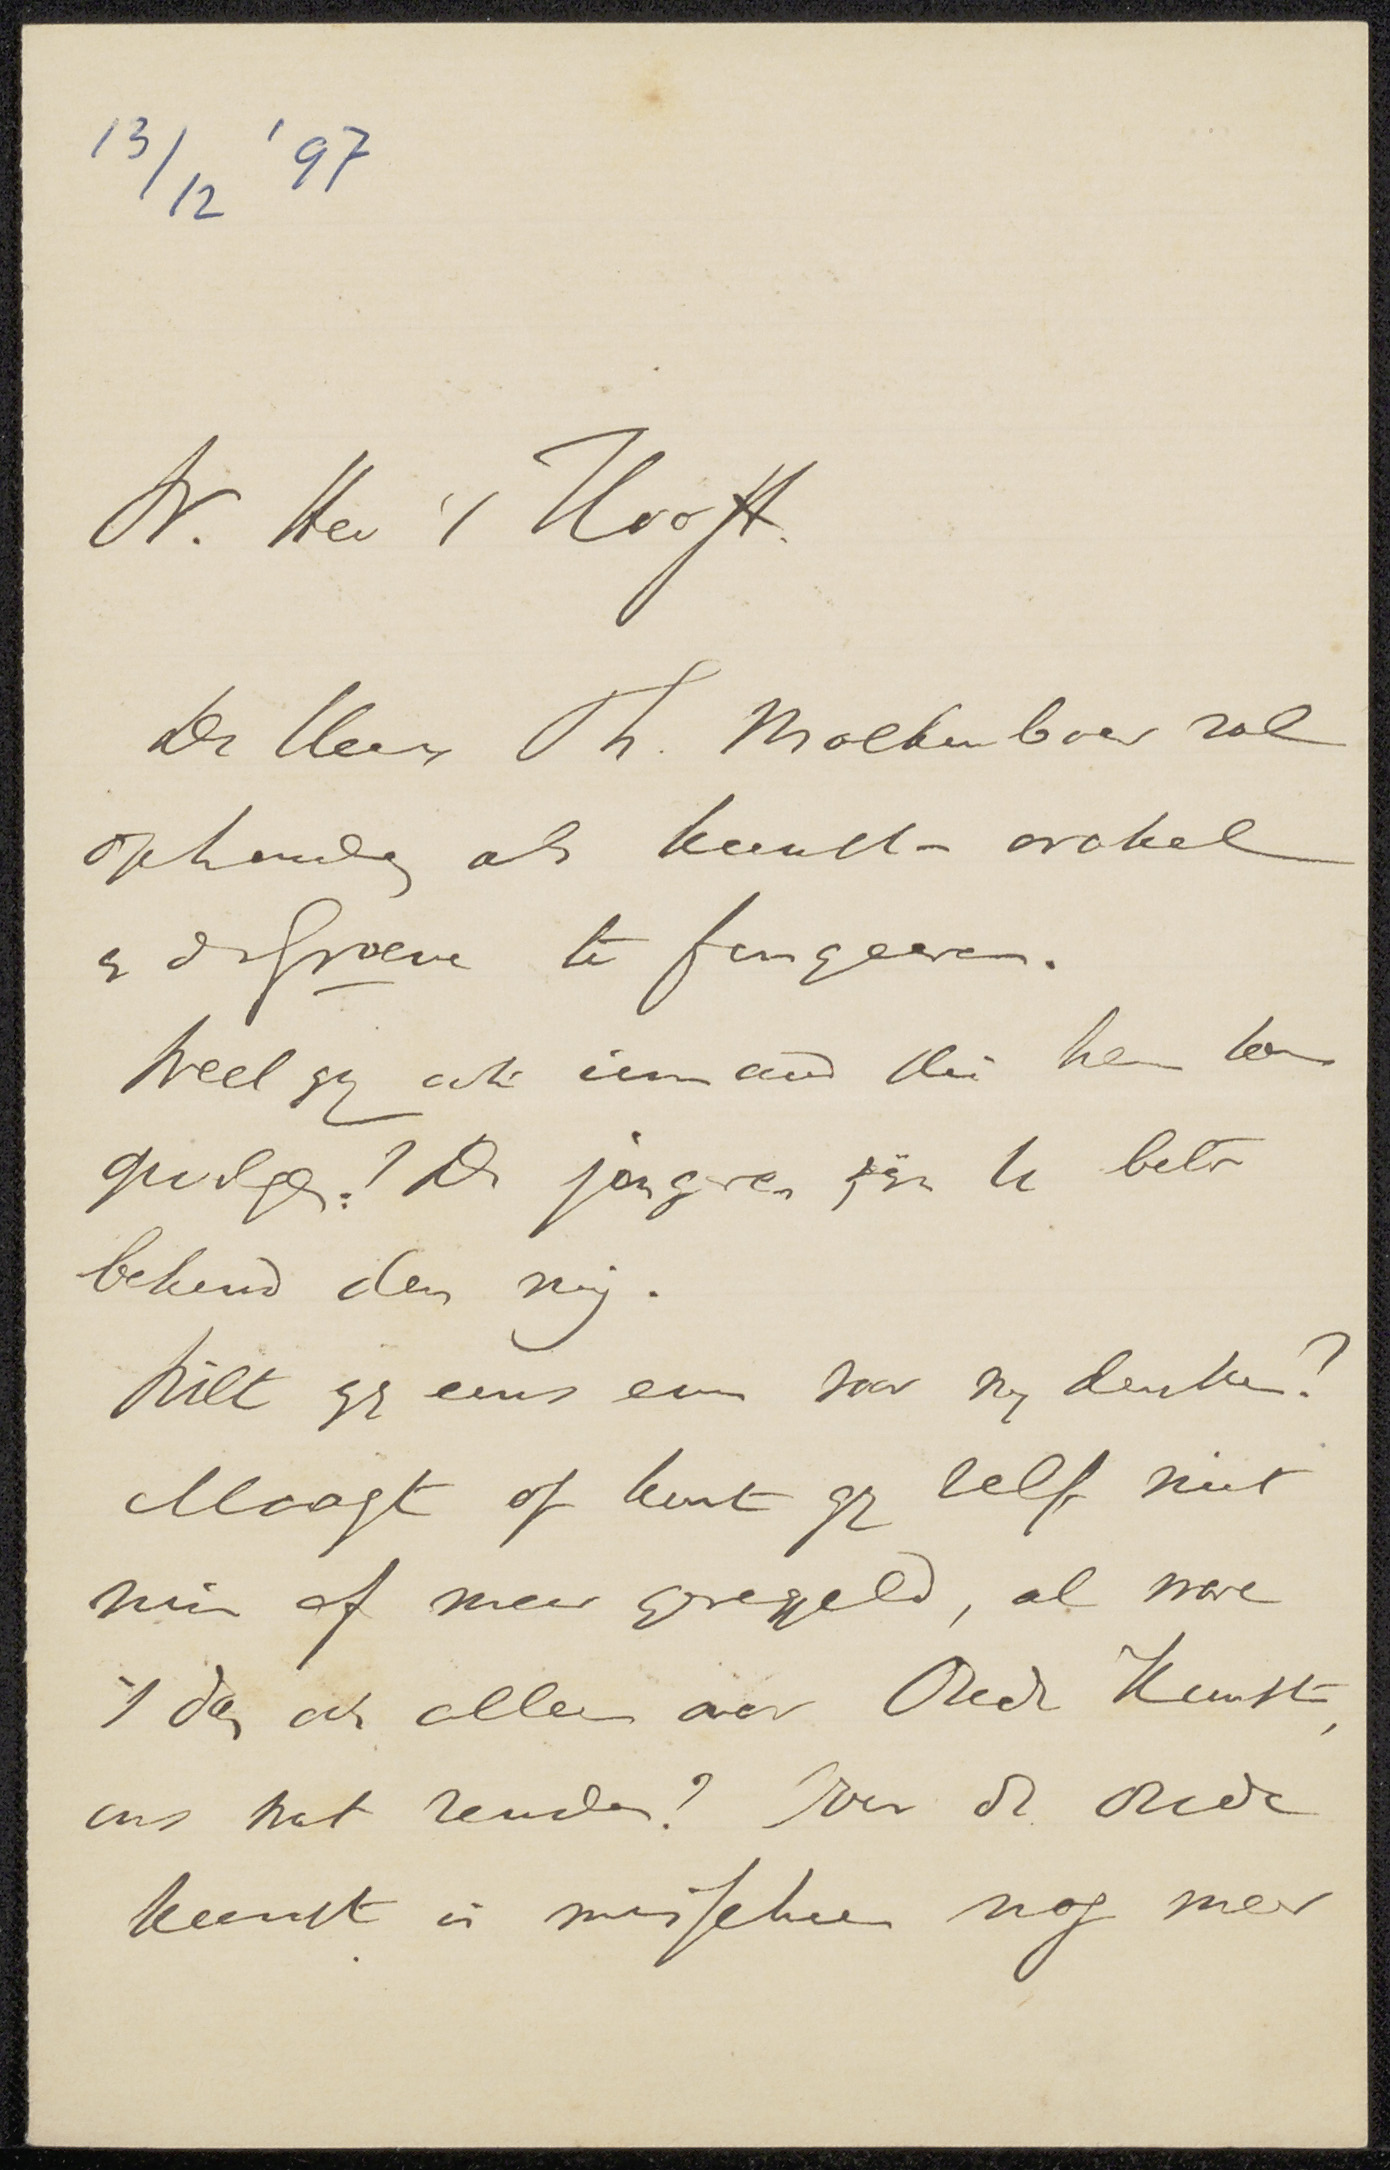 13/12 '97
W. Heer 't Hooft.
De Heer Th. Molkenboer zal
ophouden als kunst-orakel
in de Groene te fungeeren.
Weet gij ook iemand die hem kan
opvolgen? De jongeren zijn U beter
bekend dan mij.
Wilt gij eens even voor mij denken?
Moogt of kunt gij zelf niet
min of meer geregeld, al ware
't dan ook alleen over Oude Kunst,
ons wat zenden? Over de oude
kunst is misschien nog meer